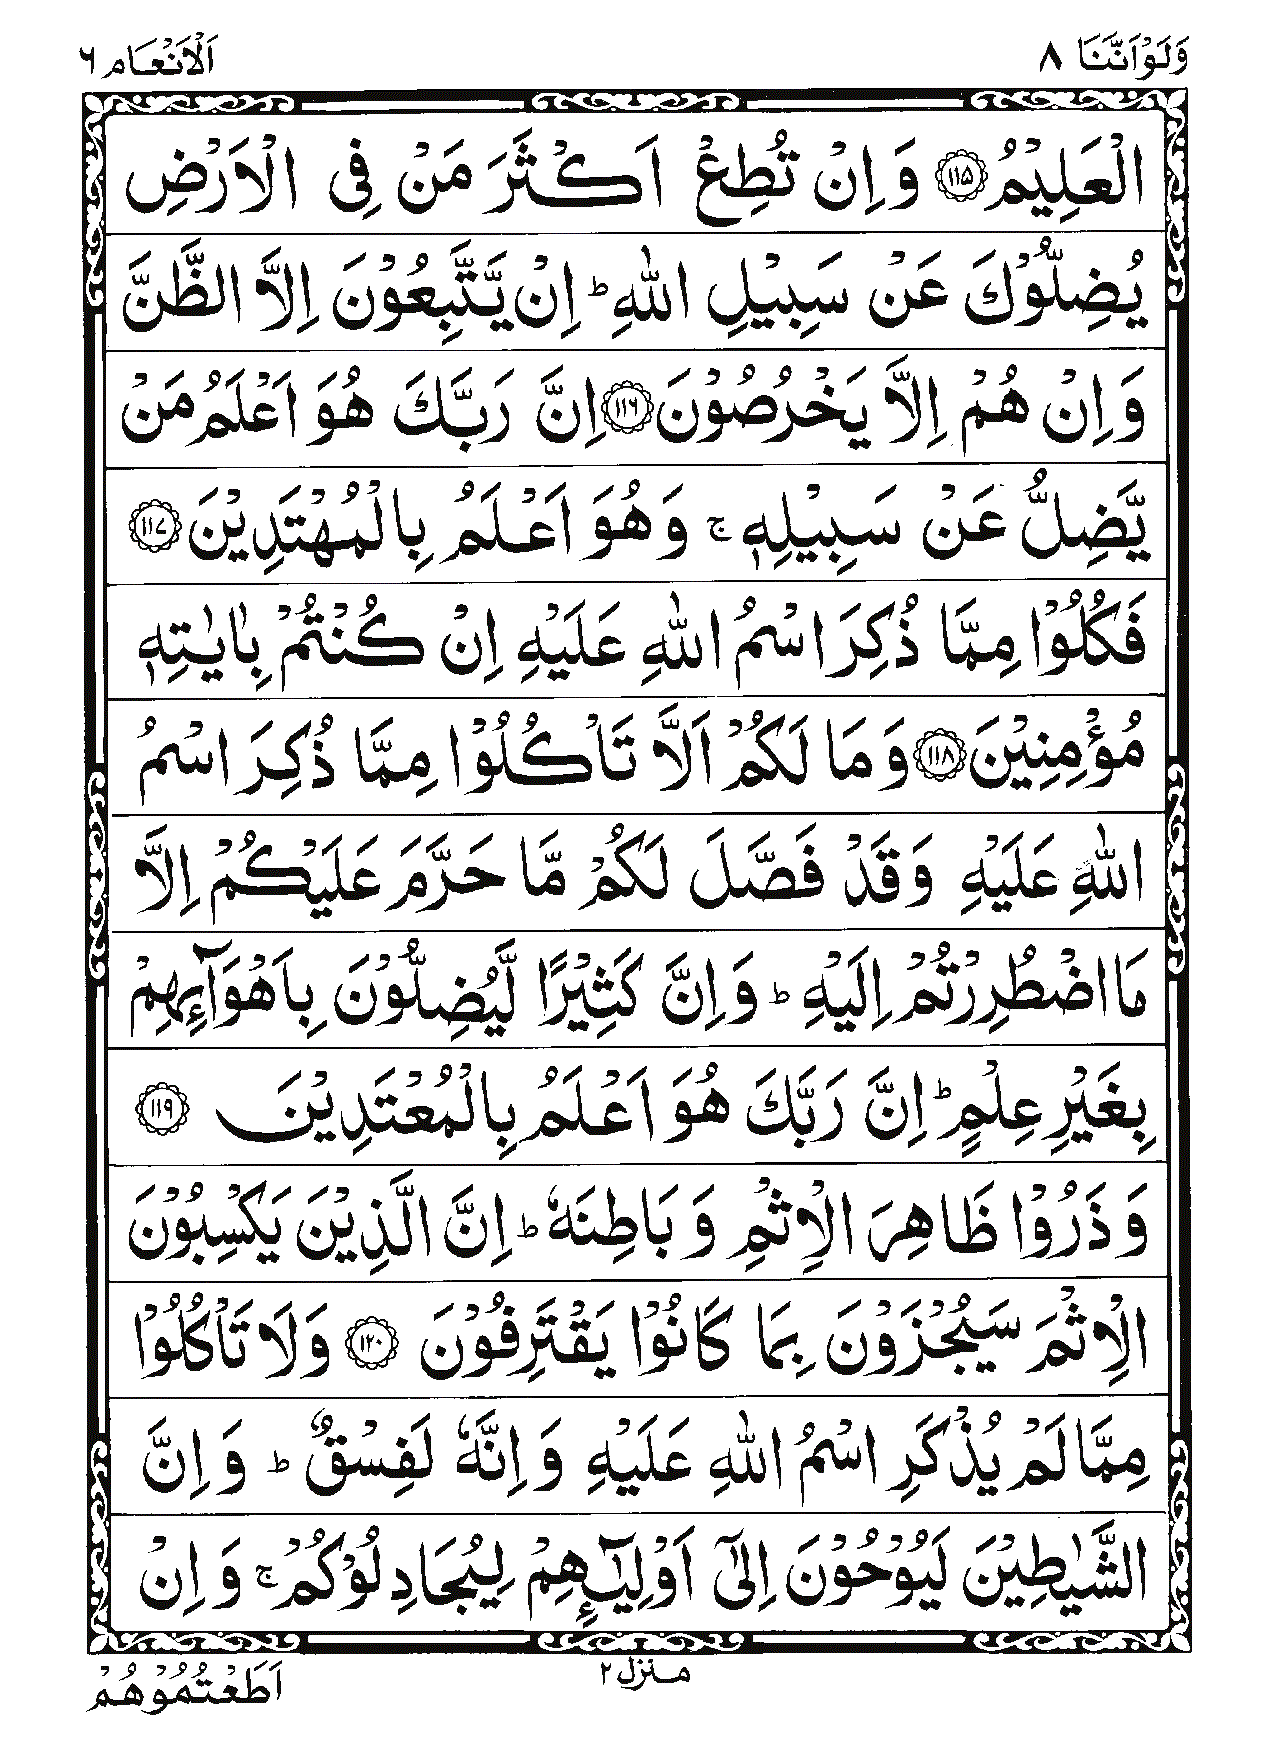 وَلَوْاَنَّنَا ٨
اَلْاَنْعَام ٦
الْعَلِيْمُ ١١٥ وَاِنْ تُطِعْ اَكْثَرَ مَنْ فِى الْاَرْضِ
يُضِلُّوْكَ عَنْ سَبِيْلِ اللّٰهِ ؕ اِنْ يَّتَّبِعُوْنَ اِلَّا الظَّنَّ
وَاِنْ هُمْ اِلَّا يَخْرُصُوْنَ ١١٦ اِنَّ رَبَّكَ هُوَ اَعْلَمُ مَنْ
يَّضِلُّ عَنْ سَبِيْلِهٖ ۚ وَهُوَ اَعْلَمُ بِالْمُهْتَدِيْنَ ١١٧
فَكُلُوْا مِمَّا ذُكِرَ اسْمُ اللّٰهِ عَلَيْهِ اِنْ كُنْتُمْ بِاٰيٰتِهٖ
مُؤْمِنِيْنَ ١١٨ وَمَا لَكُمْ اَلَّا تَاْكُلُوْا مِمَّا ذُكِرَ اسْمُ
اللّٰهِ عَلَيْهِ وَقَدْ فَصَّلَ لَكُمْ مَّا حَرَّمَ عَلَيْكُمْ اِلَّا
مَا اضْطُرِرْتُمْ اِلَيْهِ ؕ وَاِنَّ كَثِيْرًا لَّيُضِلُّوْنَ بِاَهْوَآئِهِمْ
بِغَيْرِ عِلْمٍ ؕ اِنَّ رَبَّكَ هُوَ اَعْلَمُ بِالْمُعْتَدِيْنَ ١١٩
وَذَرُوْا ظَاهِرَ الْاِثْمِ وَبَاطِنَهٗ ؕ اِنَّ الَّذِيْنَ يَكْسِبُوْنَ
الْاِثْمَ سَيُجْزَوْنَ بِمَا كَانُوْا يَقْتَرِفُوْنَ ١٢٠ وَلَا تَاْكُلُوْا
مِمَّا لَمْ يُذْكَرِ اسْمُ اللّٰهِ عَلَيْهِ وَاِنَّهٗ لَفِسْقٌ ؕ وَاِنَّ
الشَّيٰطِيْنَ لَيُوْحُوْنَ اِلٰٓى اَوْلِيٰٓئِهِمْ لِيُجَادِلُوْكُمْ ۚ وَاِنْ
منزل ٢
اَطَعْتُمُوْهُمْ